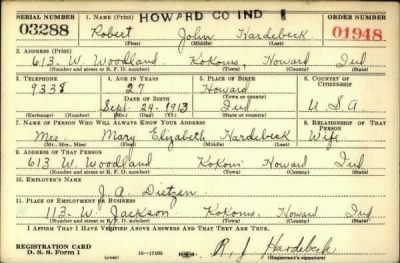 SERIAL NUMBER 1. NAME (Print) HOWARD CO IND 1 ORDER NUMBER
03288 Robert John Hardebeck 01948
(First) (Middle) (Last)
2. ADDRESS (Print)
613. W. Woodland Kokomo, Howard Ind
(Number and street or R. F. D. number) (Town) (County) (State)
3. TELEPHONE 4. AGE IN YEARS 5. PLACE OF BIRTH 6. COUNTRY OF CITIZENSHIP
9338 27 Howard
DATE OF BIRTH (Town or county)
Sept. 24. 1913 Ind U S A
(Exchange) (Number) (Mo.) (Day) (Yr.) (State or country)
7. NAME OF PERSON WHO WILL ALWAYS KNOW YOUR ADDRESS 8. RELATIONSHIP OF THAT PERSON
Mrs. Mary Elizabeth Hardebeck Wife
(Mr., Mrs., Miss) (First) (Middle) (Last)
9. ADDRESS OF THAT PERSON
613 W. Woodland Kokomo Howard Ind
(Number and street or R. F. D. number) (Town) (County) (State)
10. EMPLOYER'S NAME
J. A. Dietzen
11. PLACE OF EMPLOYMENT OR BUSINESS
113. W. Jackson Kokomo, Howard Ind
(Number and street or R. F. D. number) (Town) (County) (State)
I AFFIRM THAT I HAVE VERIFIED ABOVE ANSWERS AND THAT THEY ARE TRUE.
REGISTRATION CARD
D. S. S. Form 1 R. J. Hardebeck
(Registrant's signature)